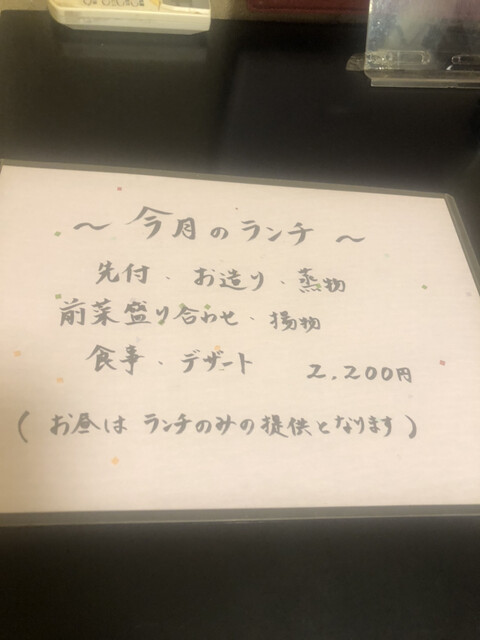 ～ 今月のランチ ～
先付・お造り・蒸物
前菜盛り合わせ・揚物
食事・デザート 2,200円
(お昼は ランチのみの提供となります)